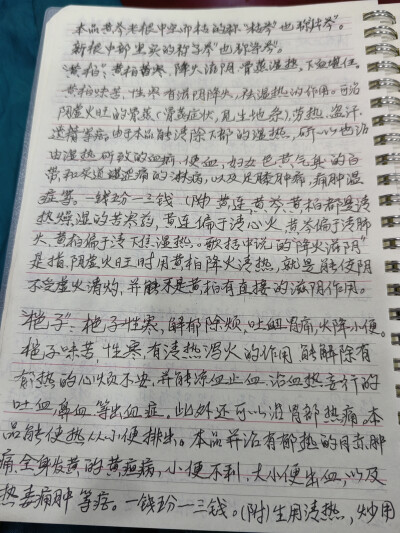 本品黄芩老根中空而枯的称"枯芩"也称片芩"。
新根中部坚实的称子芩"也称条芩"。
"黄柏":黄柏苦寒,降火滋阴,骨蒸湿热,下血堪任。
黄柏味苦,性寒有滋阴降火,祛湿热的作用。可治
阴虚火旺的骨蒸(骨蒸症状,见生地条),劳热,盗汗,
遗精等病。由于本品能清除下部的湿热,所以也治
由湿热所致的血痢,便血,妇女色黄气臭的白
带和尿道涩痛的淋病,以及足膝肿痛,痈肿湿
症等。一钱五分—三钱(附)黄连黄芩黄柏都是清
热燥湿的苦寒药,黄连偏于清心火,黄芩偏于清肺
火,黄柏偏于清下焦湿热。歌括中说的"降火滋阴"
是指,阴虚火旺时用黄柏降火清热,就是能使阴
不受虚火清灼,并能不是黄柏有直接的滋阴作用。
"栀子":栀子性寒,解郁除烦,吐衄胃痛,火降小便。
栀子味苦,性寒有清热泻火的作用,能解除有
郁热的心烦不安,并能凉血止血治血热妄行的
吐血鼻血等出血症,此外还可以治胃部热痛。本
品能使热从小便排出。本品并治有郁热的目赤肿
痛,全身发黄的黄疸病,小便不利,大小便出血,以及
热毒痛肿等症。一钱五分—三钱。(附)生用清热,炒用